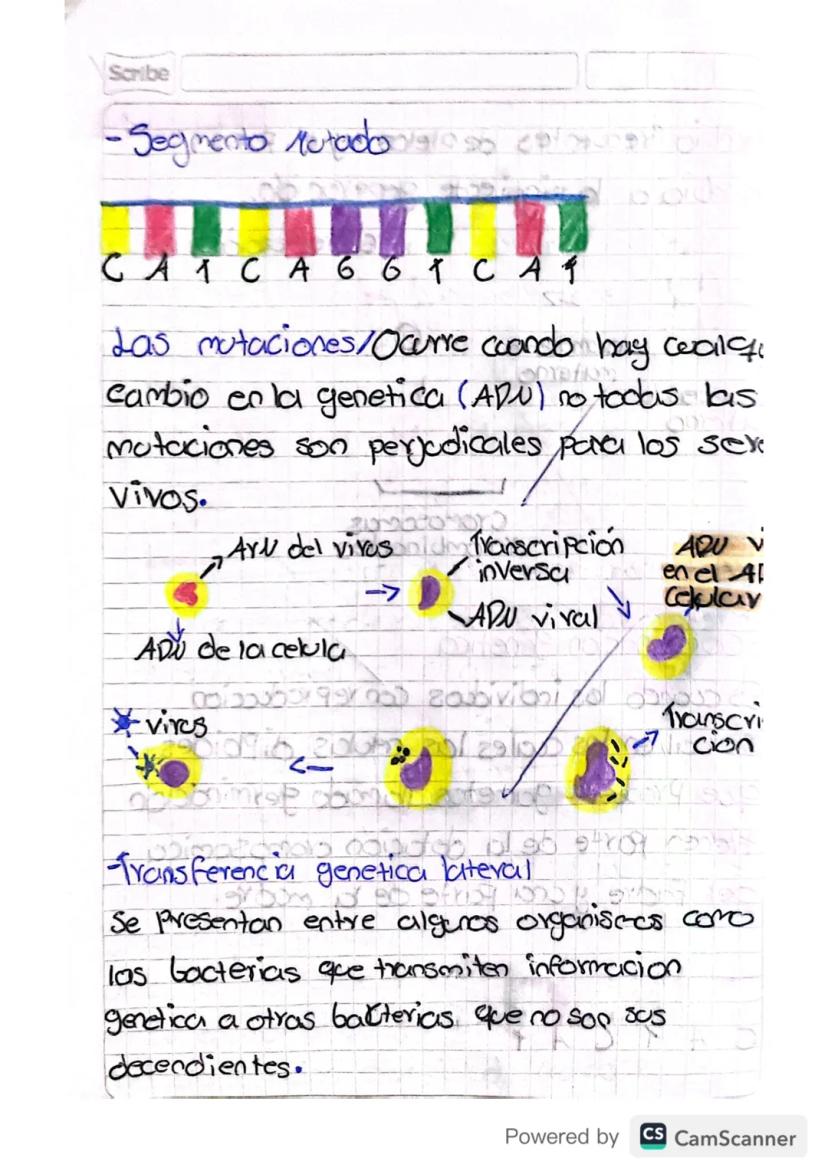 Scribe
- Segmento Mutado
C A T C A G G T C A T
Las mutaciones/Ocurre cuando hay cualqu
cambio en la genetica (ADN) no todas las
mutaciones son perjudicales para los sere
vivos.
ArN del virus
Transcripción
inversa
ADN v
en el AD
celular
ADN viral
ADN de la celula
virus
Transcri
cion
-Transferencia genetica lateral
Se presentan entre algunos organismos como
las bacterias que transmiten informacion
genetica a otras bacterias que no son sus
decendientes.
Powered by CS CamScanner